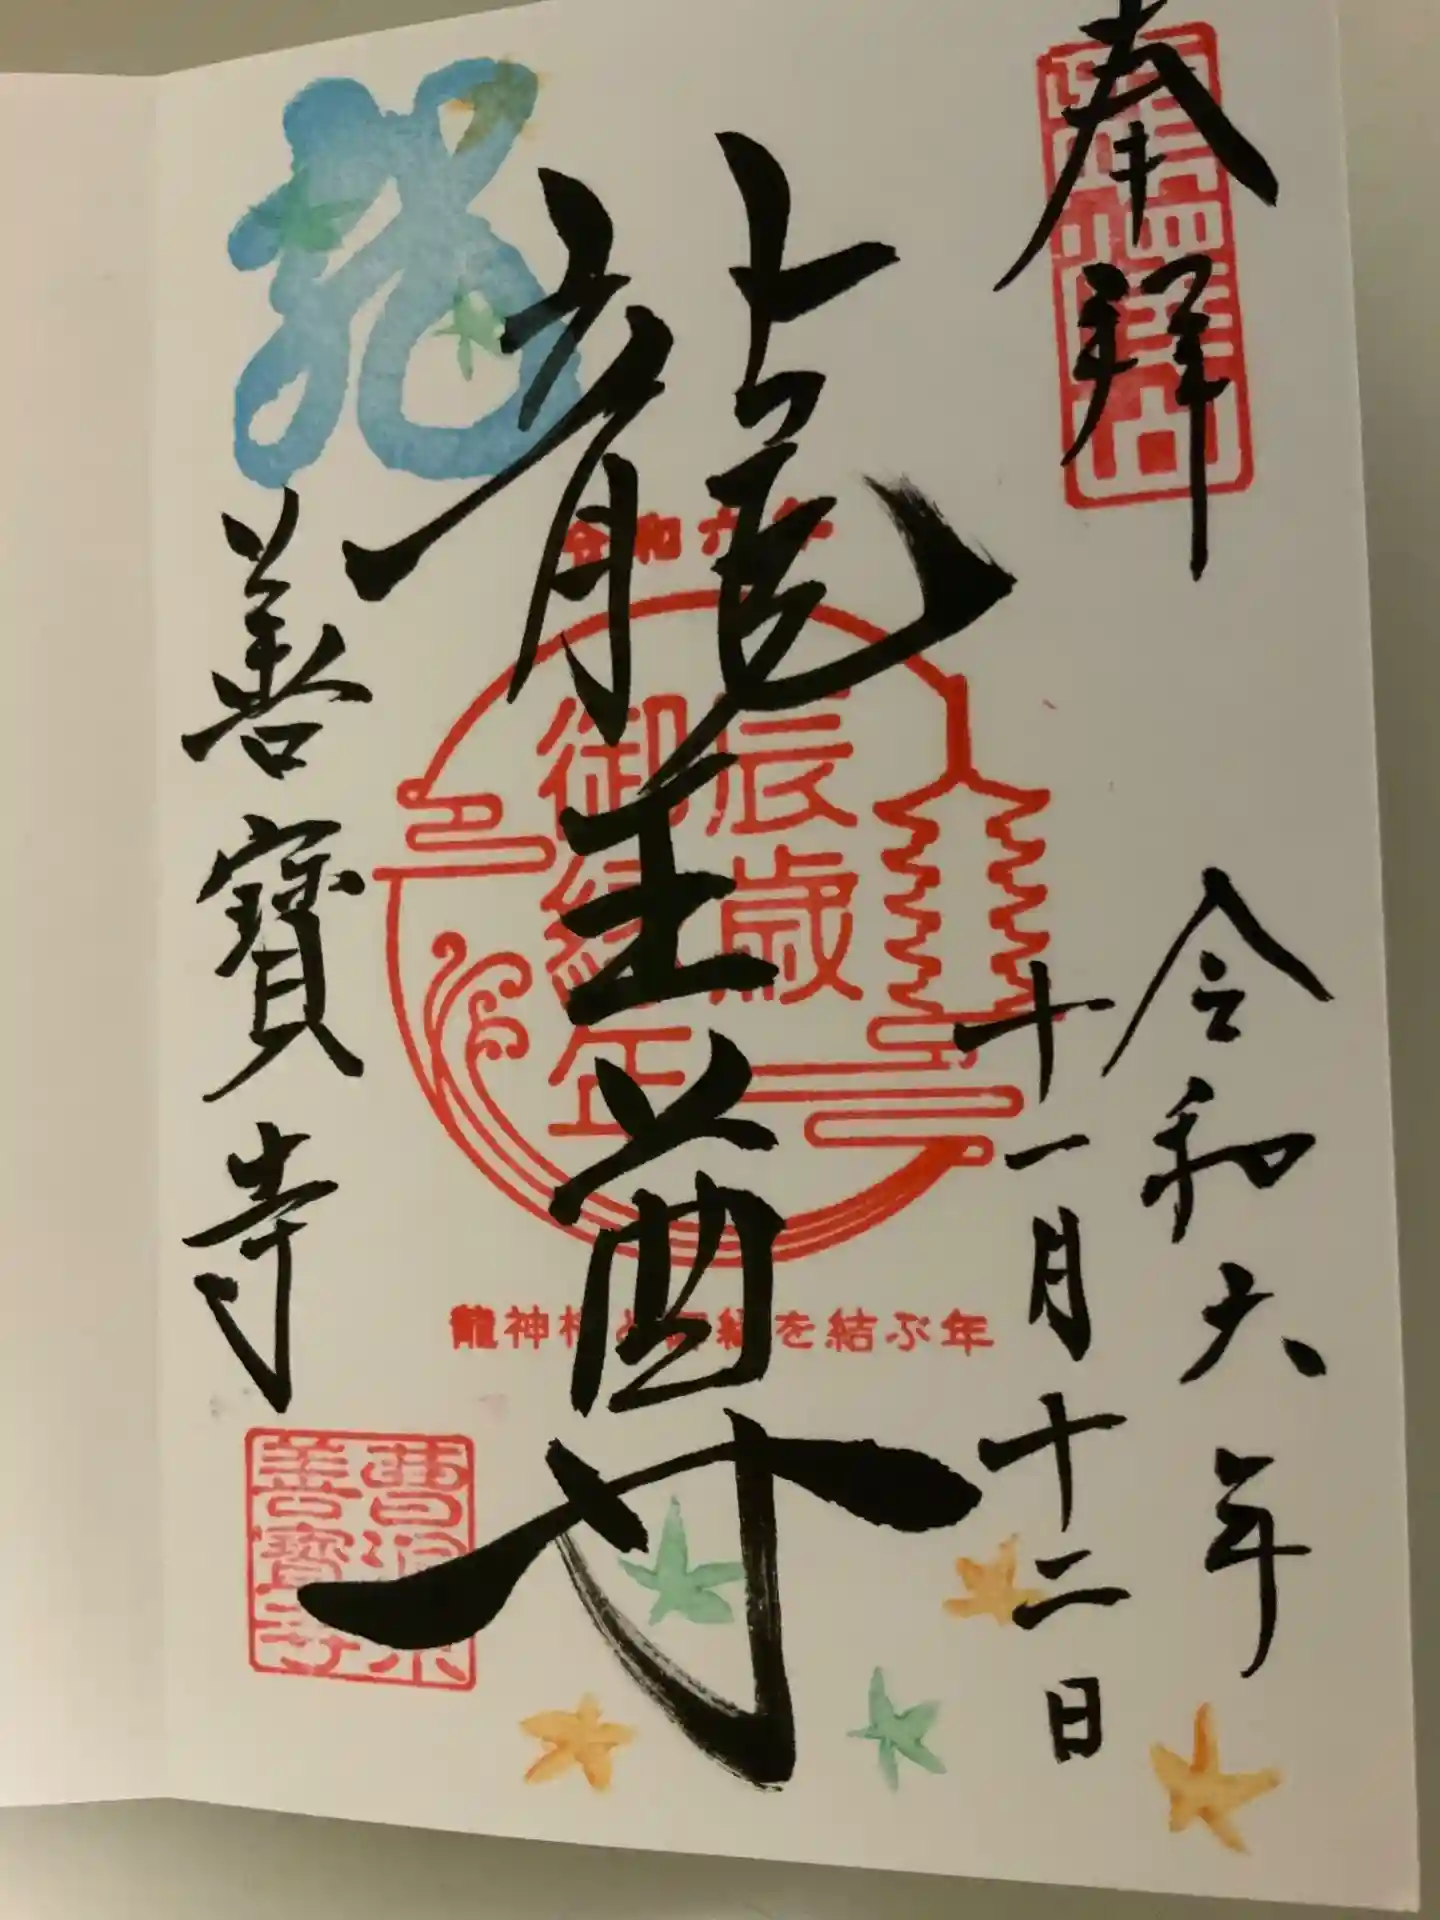 奉拝
令和六年
十一月十二日
龍王尊
龍
善寳寺
令和六年
辰歳
御縁年
龍神様と御縁を結ぶ年
善寳寺